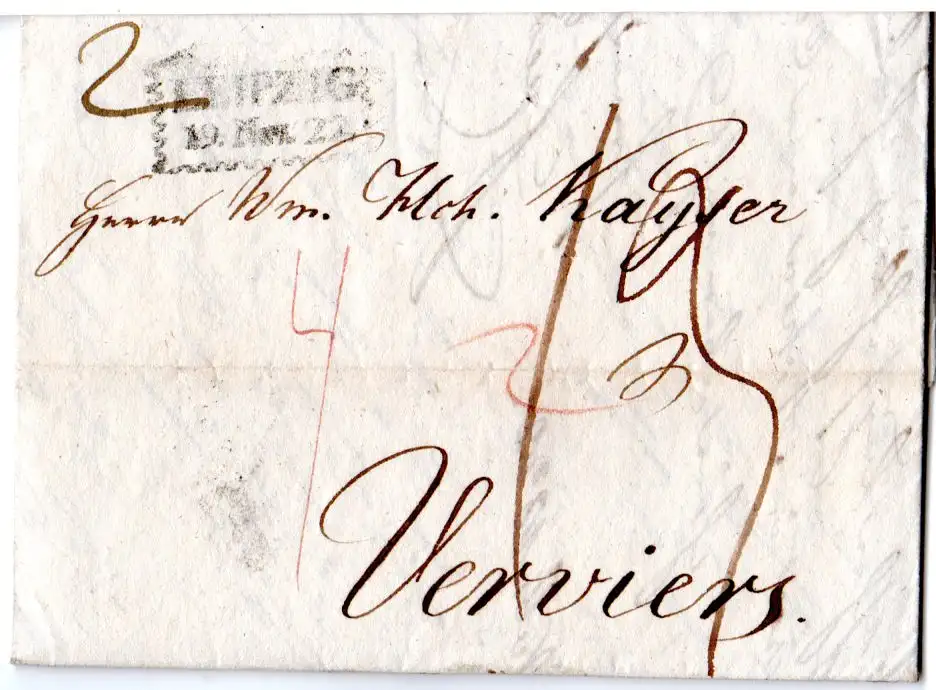 2
LEIPZIG
19. Nov. 22.
Herrn Wm. Kayser
4
2
Verviers.